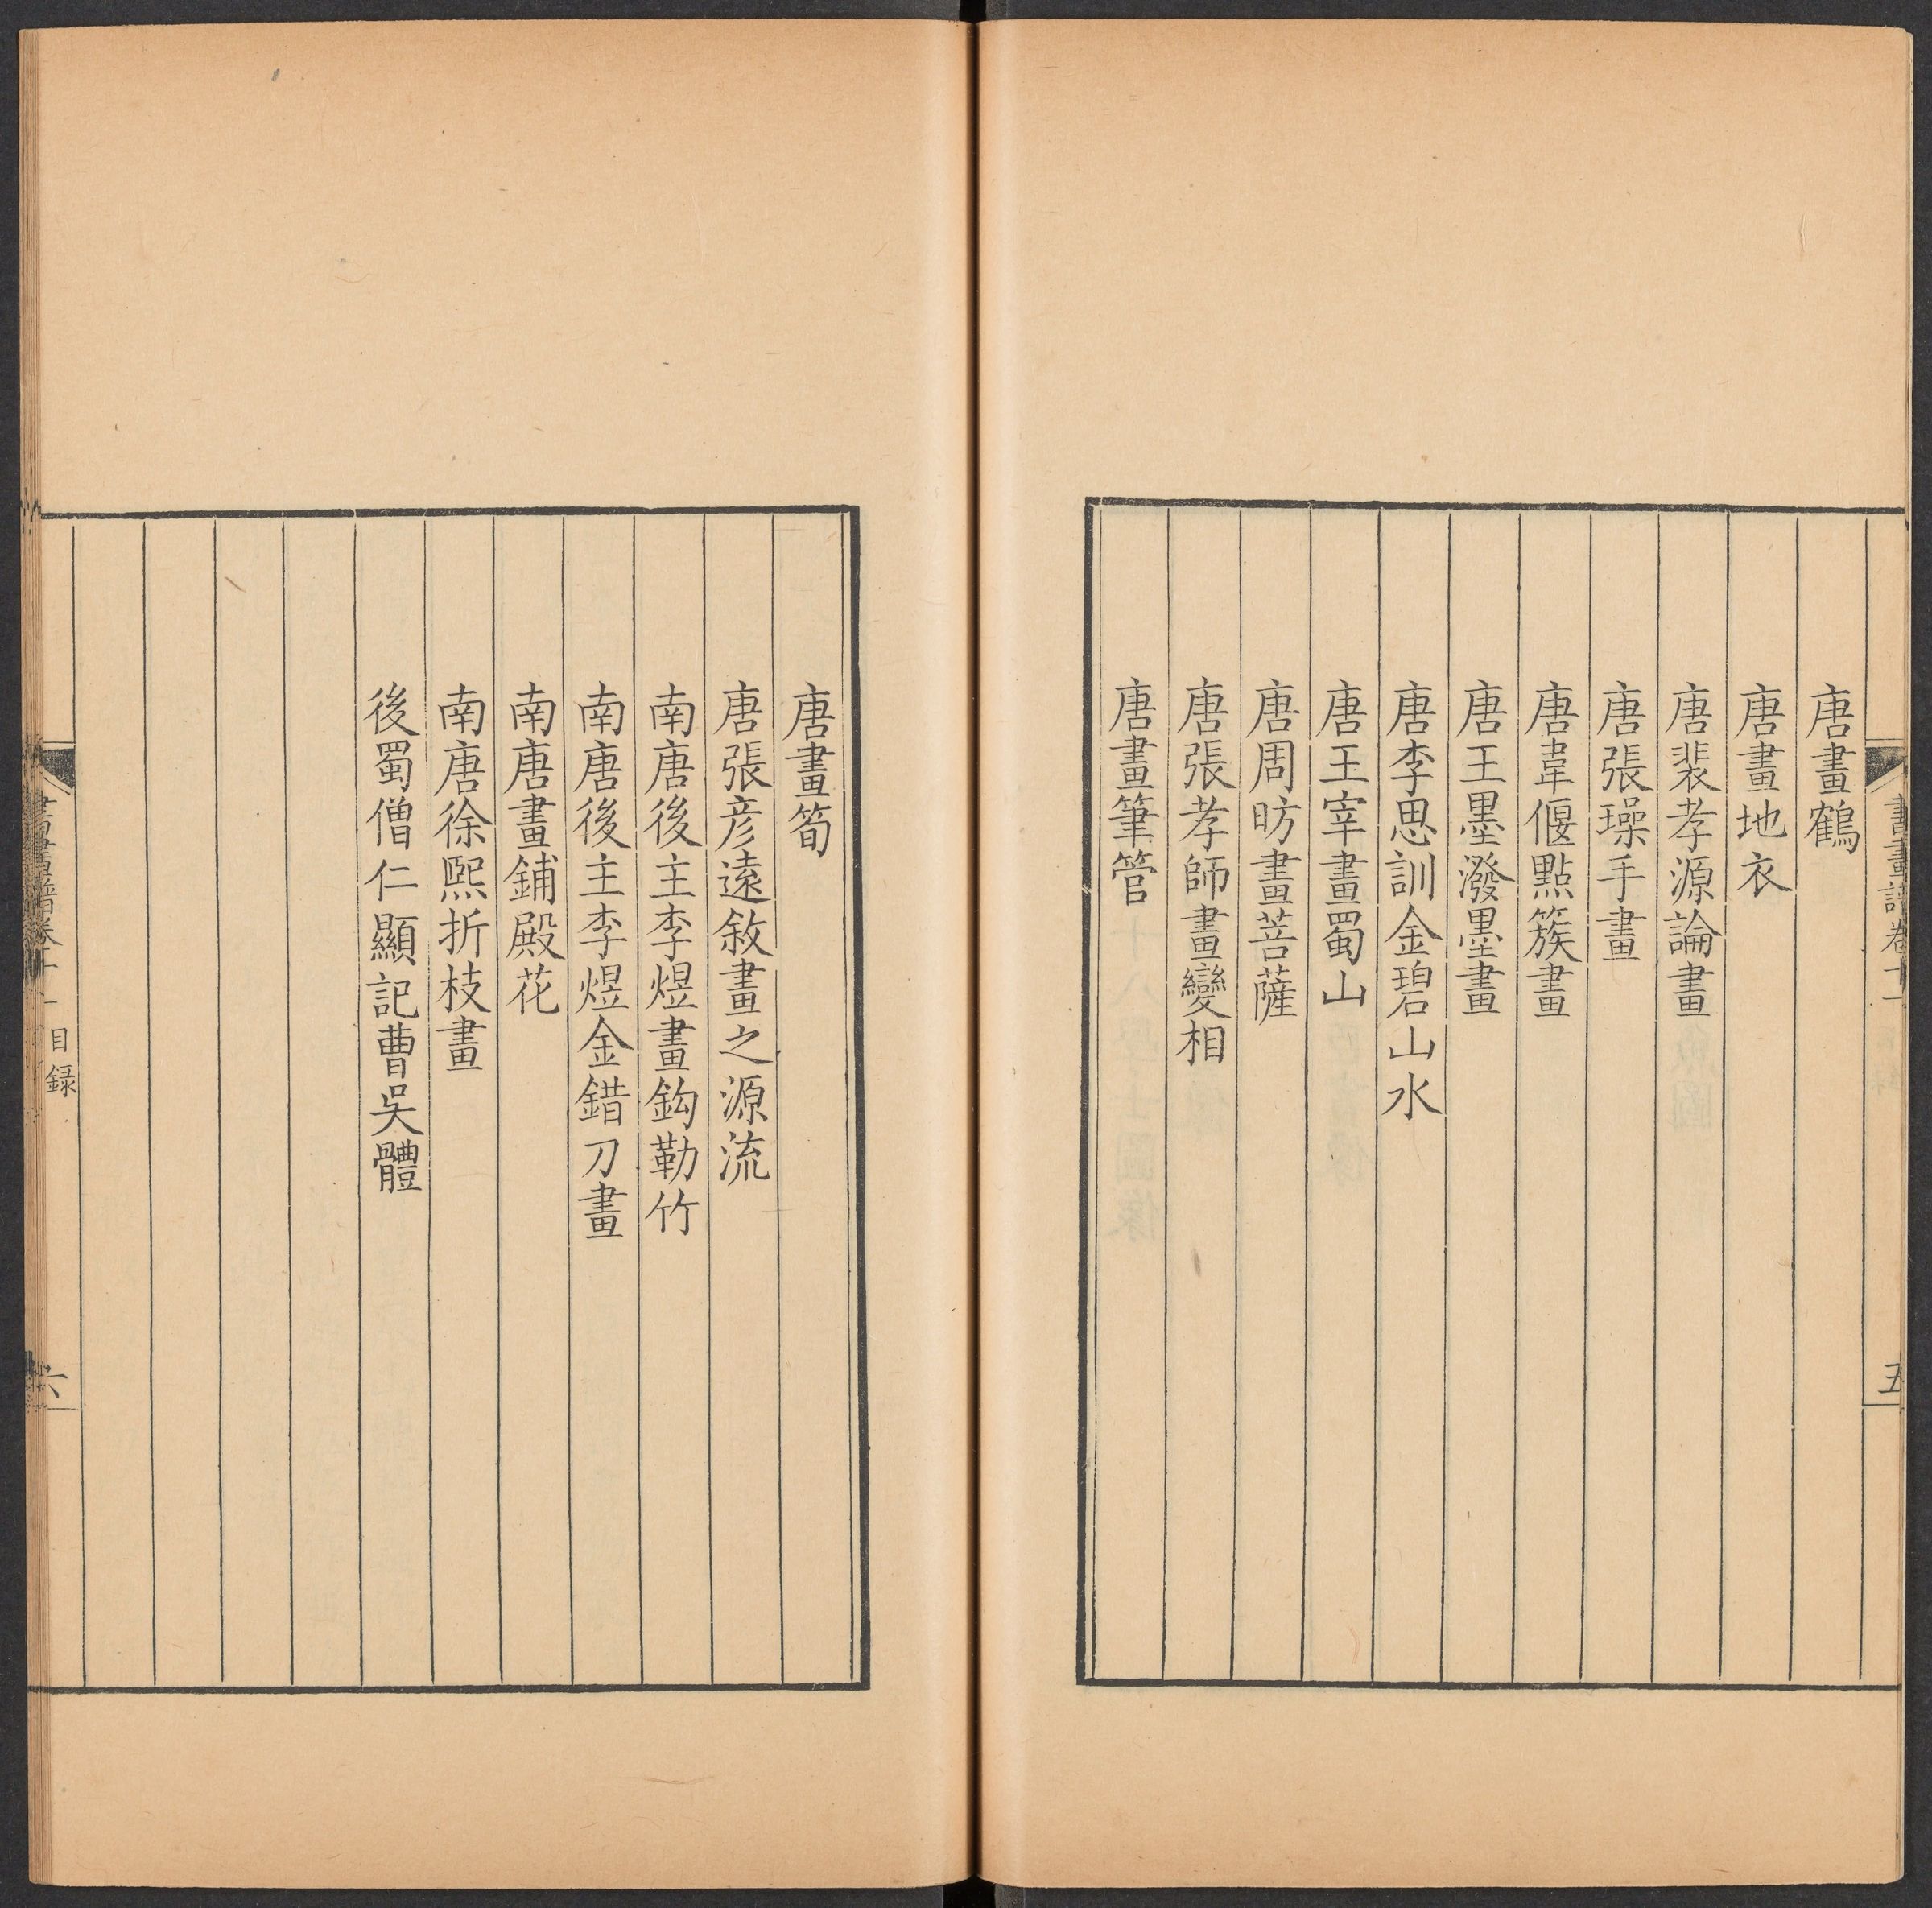 書畫譜卷十一
五
唐畫鶴
唐畫地衣
唐裴孝源論畫
唐張璪手畫
唐韋偃點簇畫
唐王墨潑墨畫
唐李思訓金碧山水
唐王宰畫蜀山
唐周昉畫菩薩
唐張孝師畫變相
唐畫筆管
唐畫筍
唐張彦遠敘畫之源流
南唐後主李煜畫鈎勒竹
南唐後主李煜金錯刀畫
南唐畫鋪殿花
南唐徐熙折枝畫
後蜀僧仁顯記曹吳體
書畫譜卷十一 目録
六